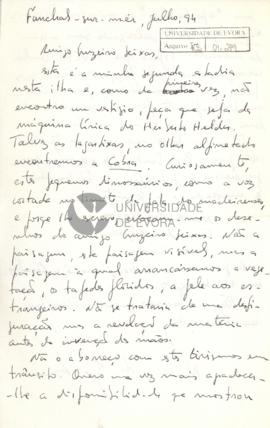 Funchal-sur-mer, julho, 94
UNIVERSIDADE DE EVORA
Arquivo
Amigo Cruzeiro Seixas,
esta é a minha segunda estadia
nesta ilha e, como da primeira vez, não
encontro um vestígio, peça que seja da
máquina lírica do Herberto Helder.
Talvez as lagartixas, no olho alfinetado
encontremos a Cobra. Curiosamente,
estes pequenos dinossáurios, como a voz
cortada no limite da fala do madeirense
e porque lhe escrevo, o dese-
nho do amigo Cruzeiro Seixas. Não a
paisagem, esta paisagem visível, mas a
paisagem à qual arrancássemos a vege-
tação, os tapetes floridos, a pele aos es-
trangeiros. Não se trataria de uma desfi-
guração mas a revolução da matéria
antes da invenção das mãos.
Não o aborreço com estes lirismos em
trânsito. Quero uma vez mais agradecer-
-lhe a disponibilidade que mostrou
UNIVERSIDADE
DE ÉVORA